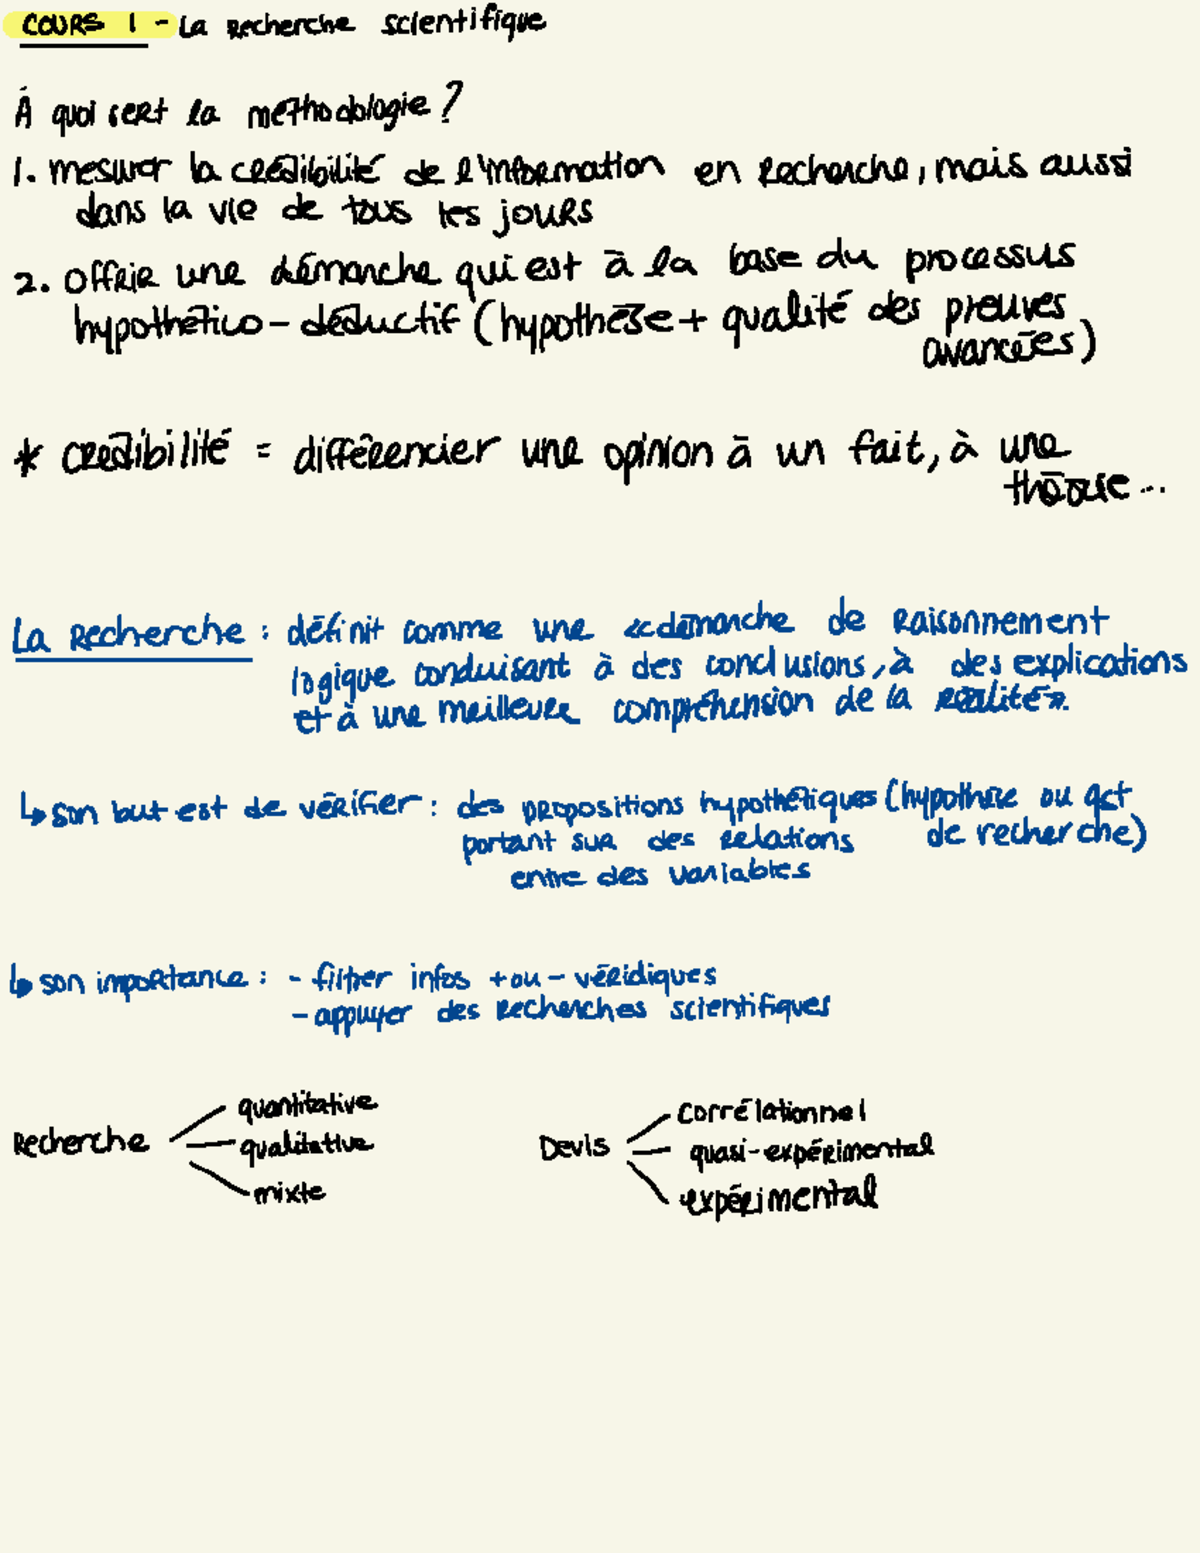 COURS 1 - La Recherche scientifique
À quoi sert la méthodologie?
1. mesurer la crédibilité de l'information en recherche, mais aussi
dans la vie de tous les jours
2. offrir une démarche qui est à la base du processus
hypothético-déductif (hypothèse + qualité des preuves
avancées)
* crédibilité = différencier une opinion à un fait, à une
théorie...
La Recherche : définit comme une «démarche de raisonnement
logique conduisant à des conclusions, à des explications
et à une meilleure compréhension de la réalité».
↳ son but est de vérifier : des propositions hypothétiques (hypothèse ou qct
portant sur des relations de recherche)
entre des variables
↳ son importance : - filtrer infos + ou - véridiques
- appuyer des recherches scientifiques
quantitative corrélationnel
Recherche qualitative Devis quasi-expérimental
mixte expérimental